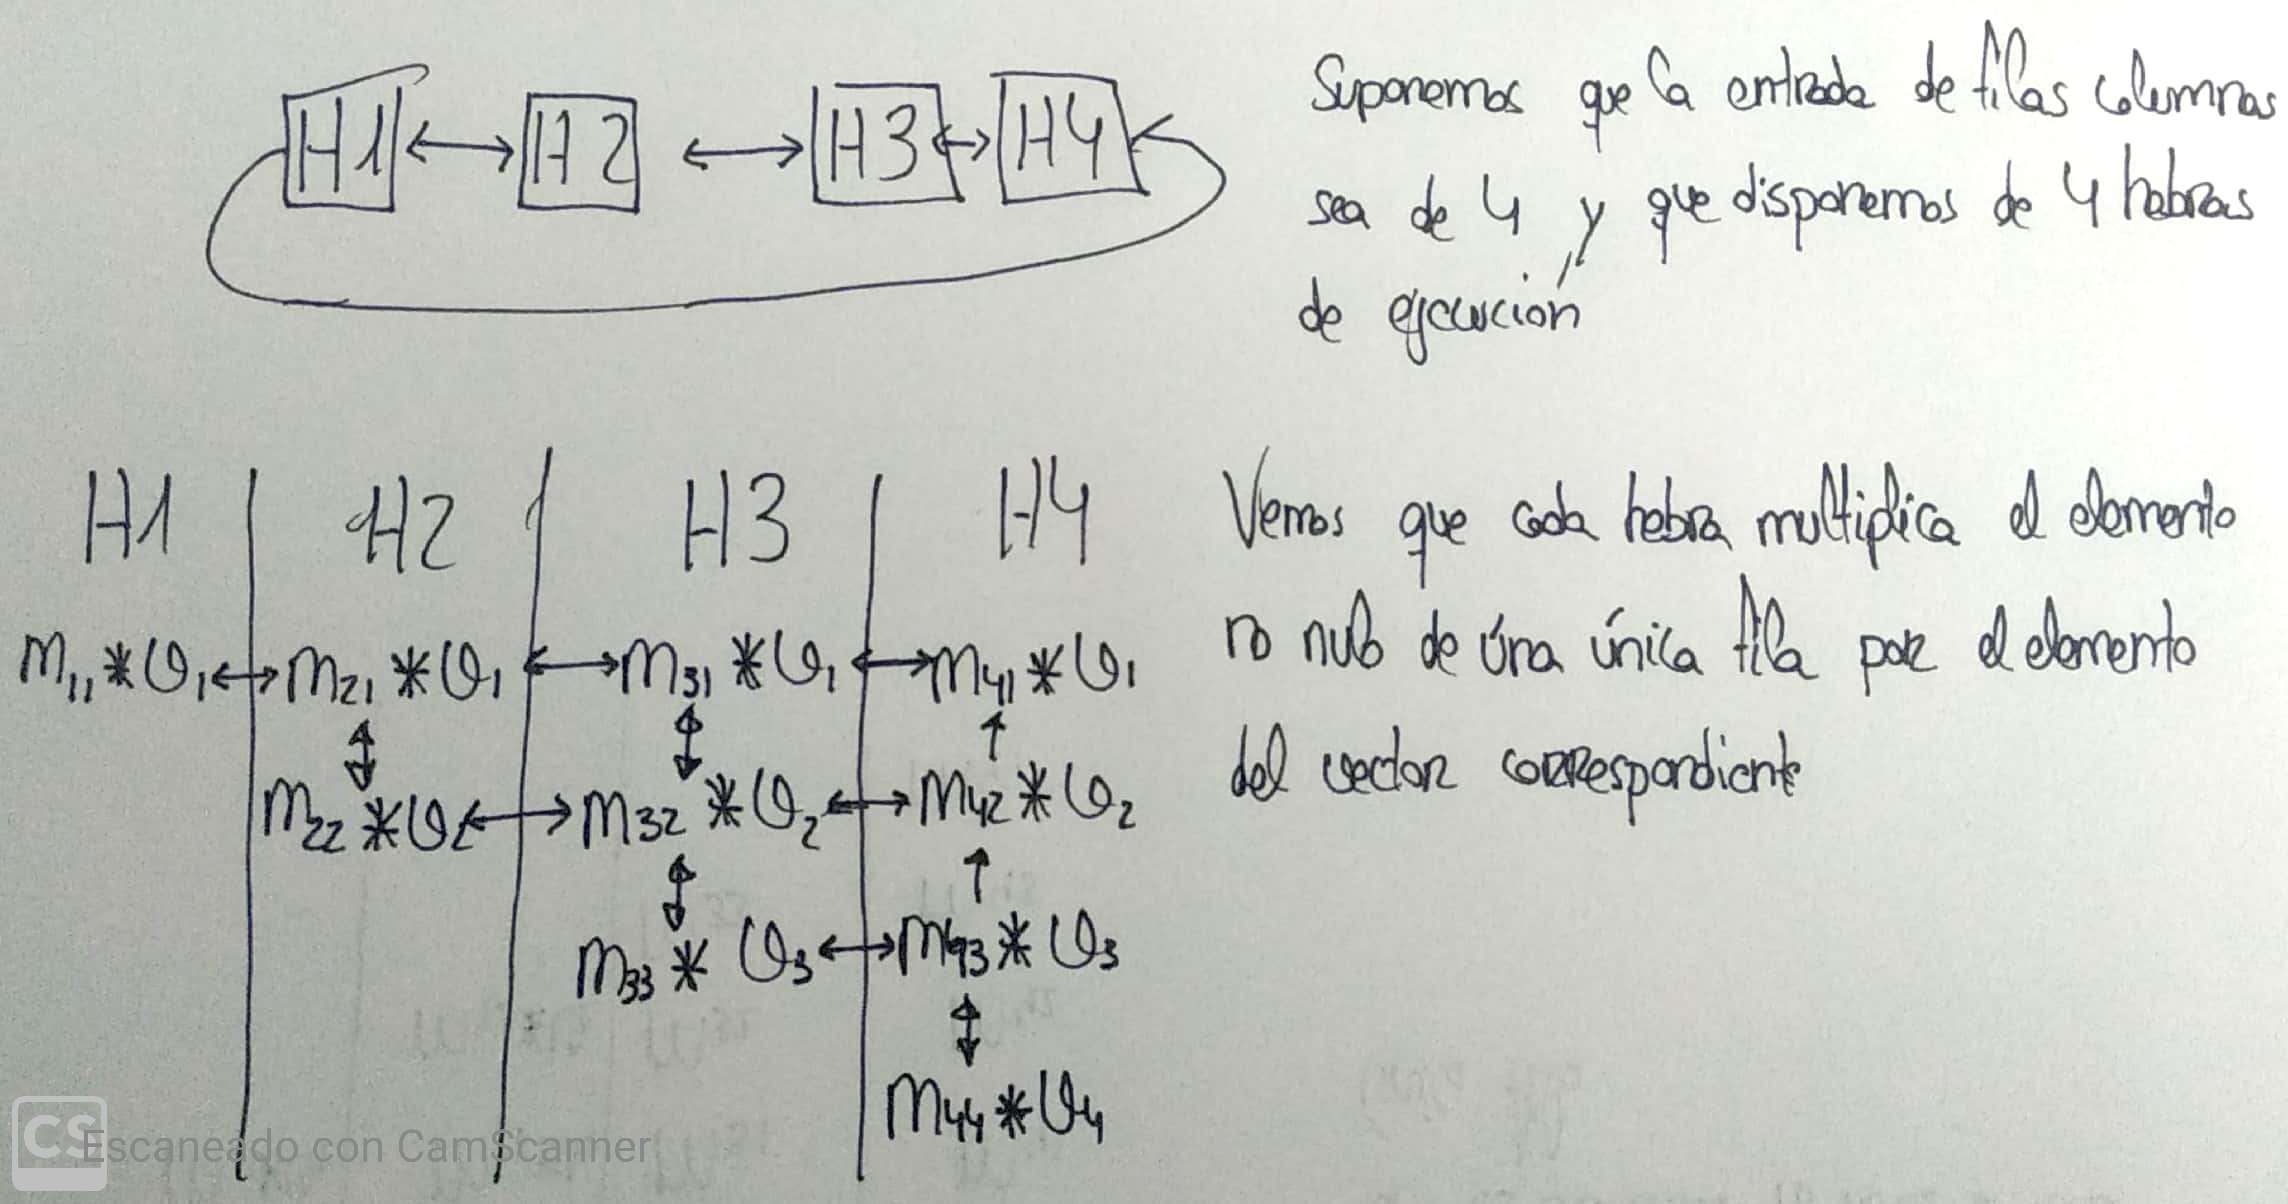 H1 H2 H3 H4
Suponemos que la entrada de filas columnas
sea de 4 y que disponemos de 4 hebras
de ejecución
H1 H2 H3 H4
m₁₁*v₁ m₂₁*v₁ m₃₁*v₁ m₄₁*v₁
m₂₂*v₂ m₃₂*v₂ m₄₂*v₂
m₃₃*v₃ m₄₃*v₃
m₄₄*v₄
Vemos que cada hebra multiplica el elemento
no nulo de una única fila por el elemento
del vector correspondiente
CS Escaneado con CamScanner